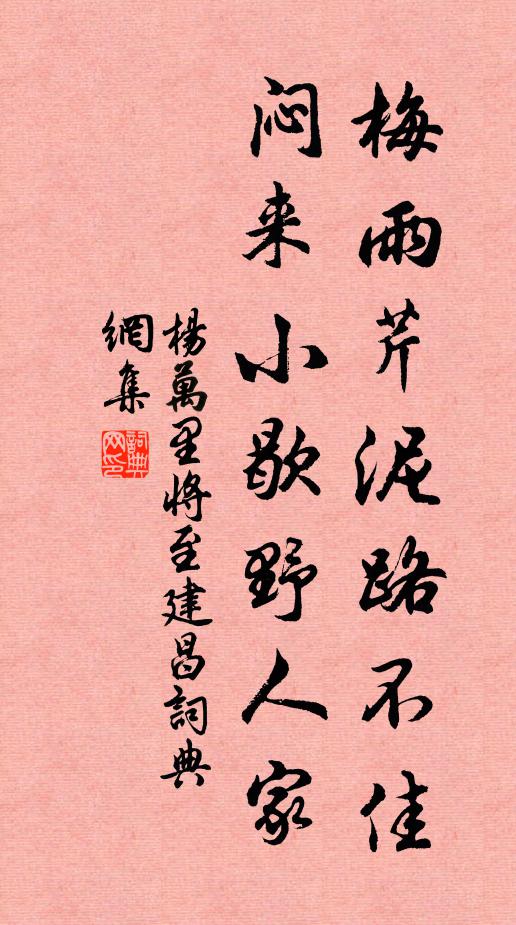 梅雨芹泥路不佳
闷来小歇野人家
楊萬里将至建昌詞典
網集
詞典
网印